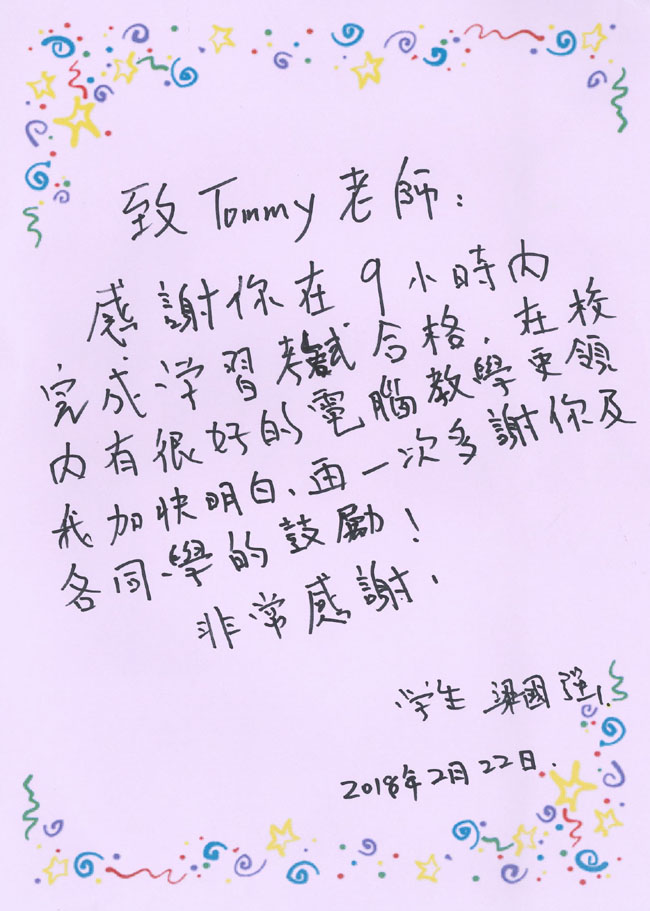 致 Tommy 老師:
感謝你在 9 小時內
完成学習考試合格，在校
內有很好的電腦教學更領
我加快明白、再一次多謝你及
各同學的鼓勵！
非常感謝，
学生 梁國强
2018年2月22日.